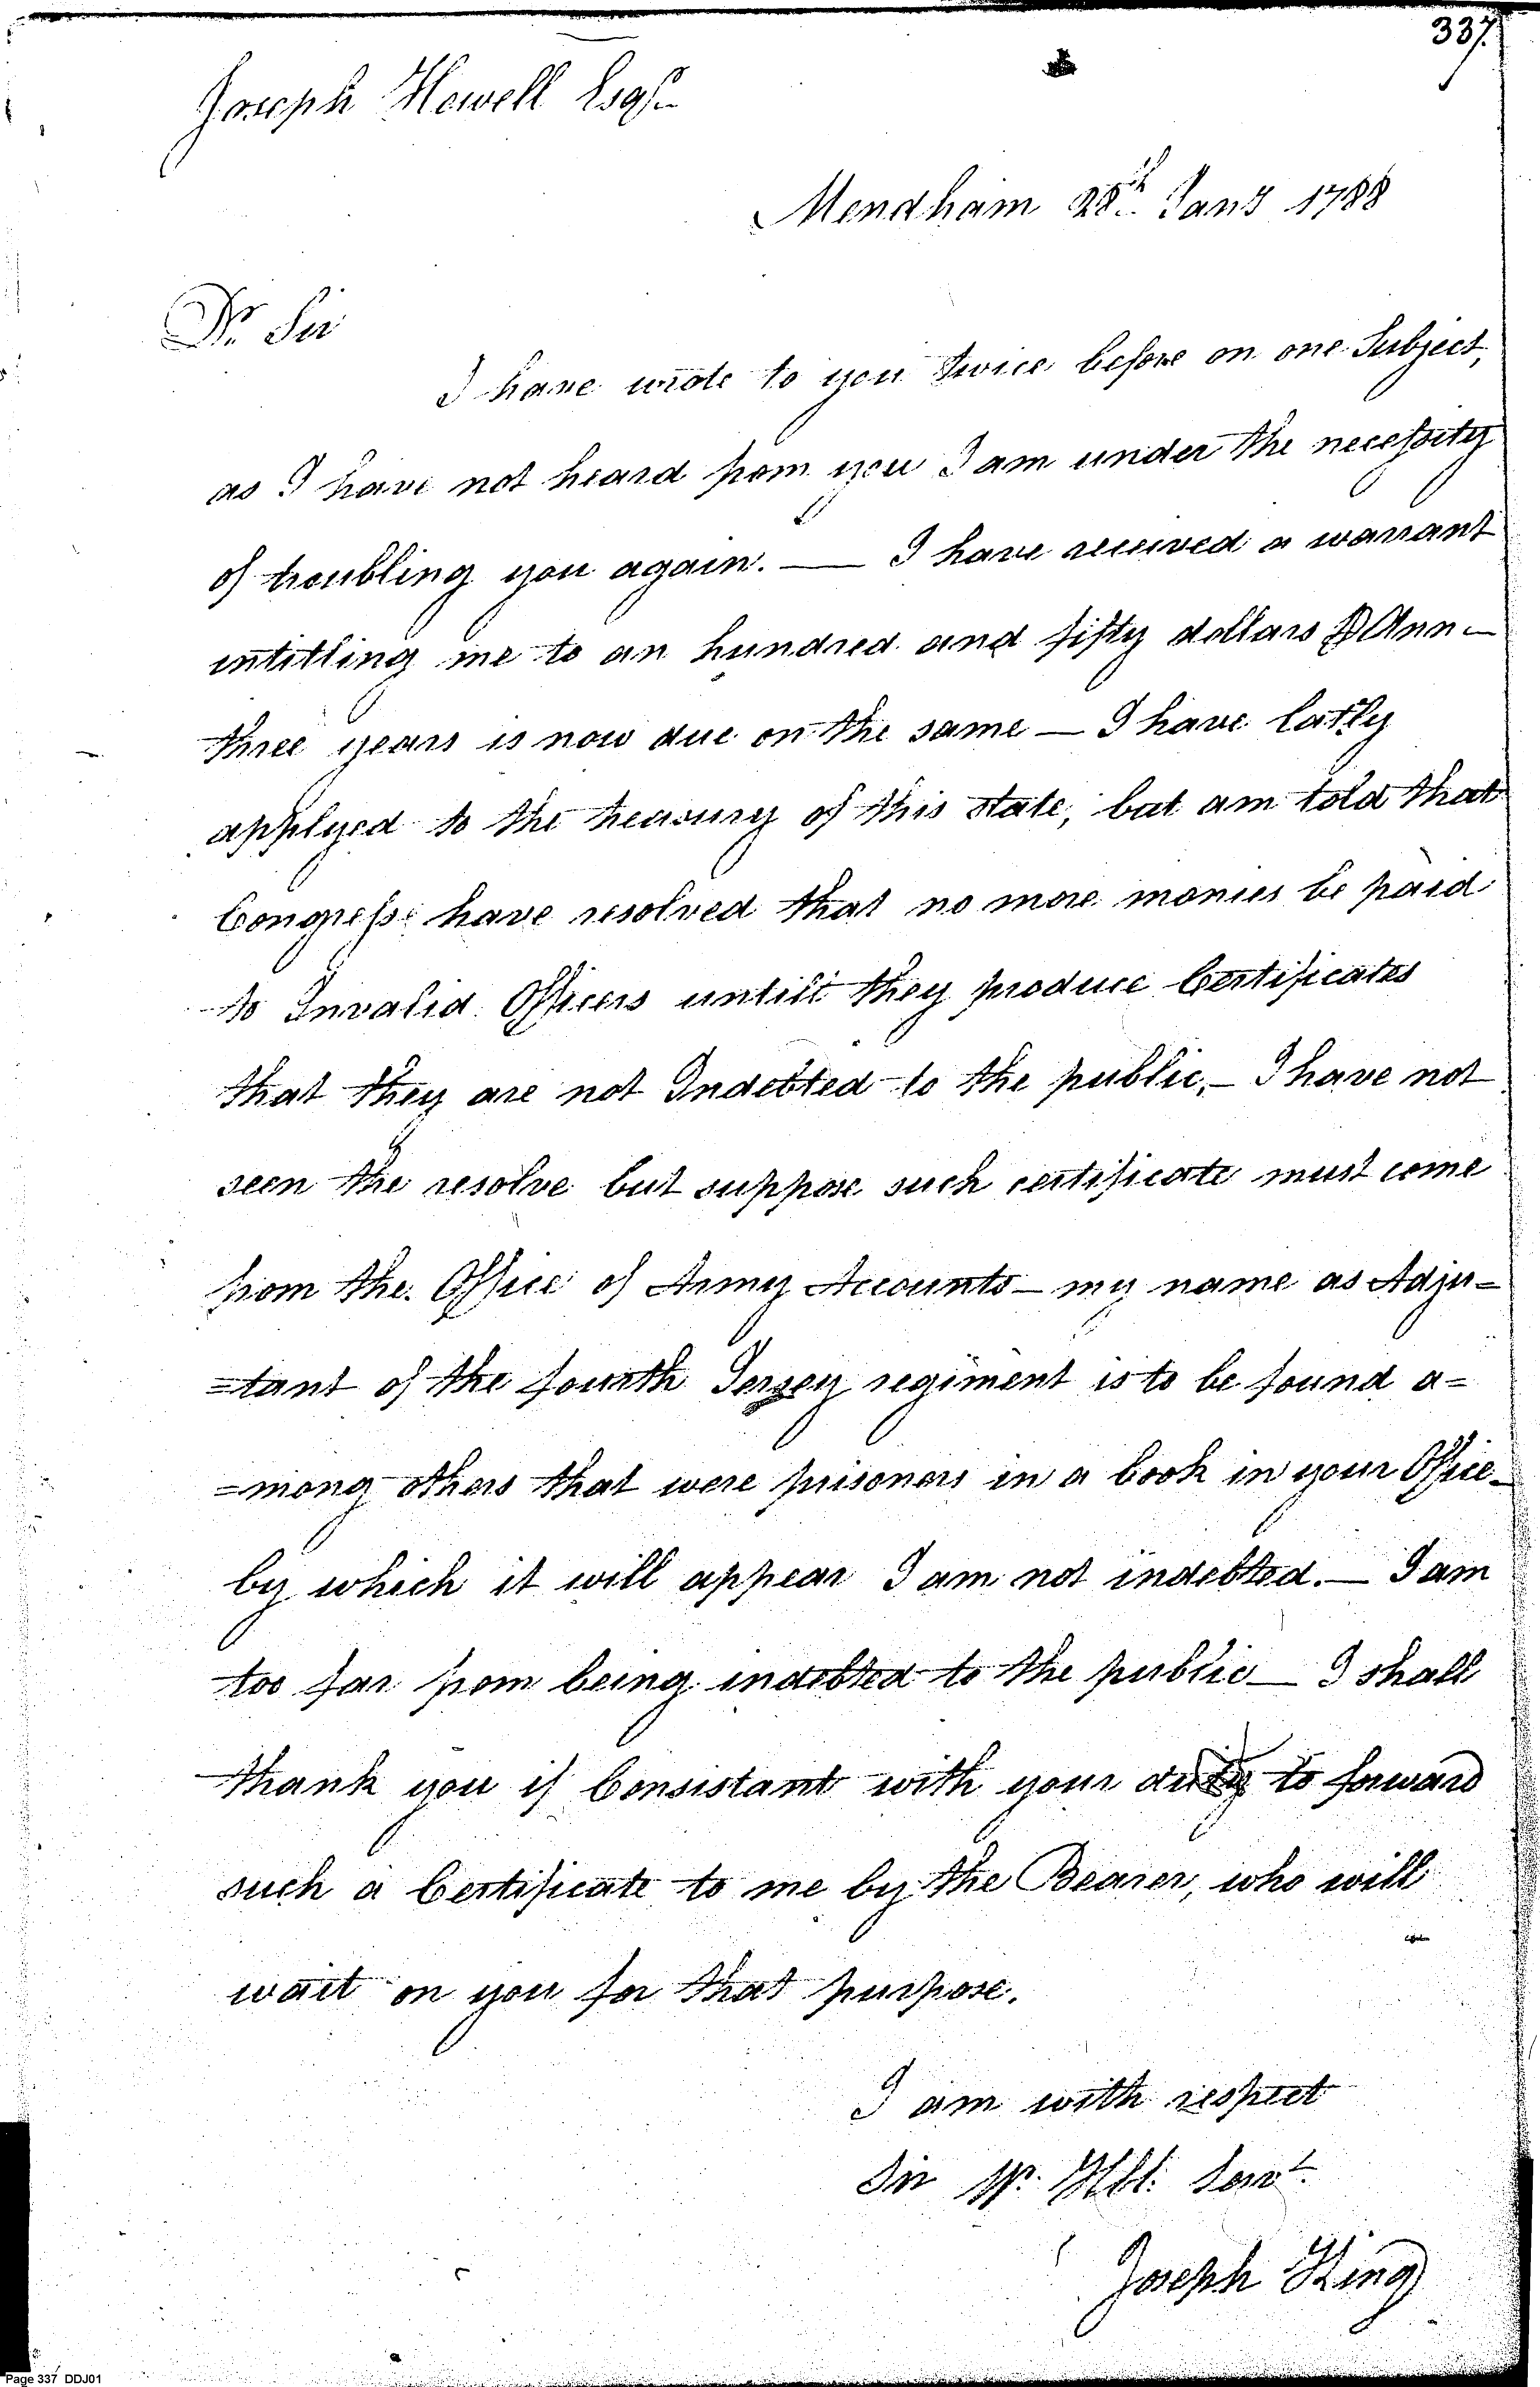 337.
Joseph Howell Esqr.
Mendham 28th. Jany 1788
Dr. Sir
I have wrote to you twice before on one Subject,
as I have not heard from you I am under the necessity
of troubling you again. — I have received a warrant
intitling me to an hundred and fifty dollars ⅌ Ann —
three years is now due on the same — I have latly
applyed to the treasury of this state, but am told that
Congress have resolved that no more monies be paid
to Invalid Officers untill they produce Certificates
that they are not Indebted to the public, — I have not
seen the resolve but suppose such certificate must come
from the Office of Army Accounts — my name as Adju=
=tant of the fourth Jersey regiment is to be found a=
=mong others that were prisoners in a book in your Office —
by which it will appear I am not indebted. — I am
too far from being indebted to the public — I shall
thank you if Consistant with your duty to forward
such a Certificate to me by the Bearer, who will
wait on you for that purpose.
I am with respect
Sir Yr. Hbl. Servt.
Joseph King
Page 337 DDJ01